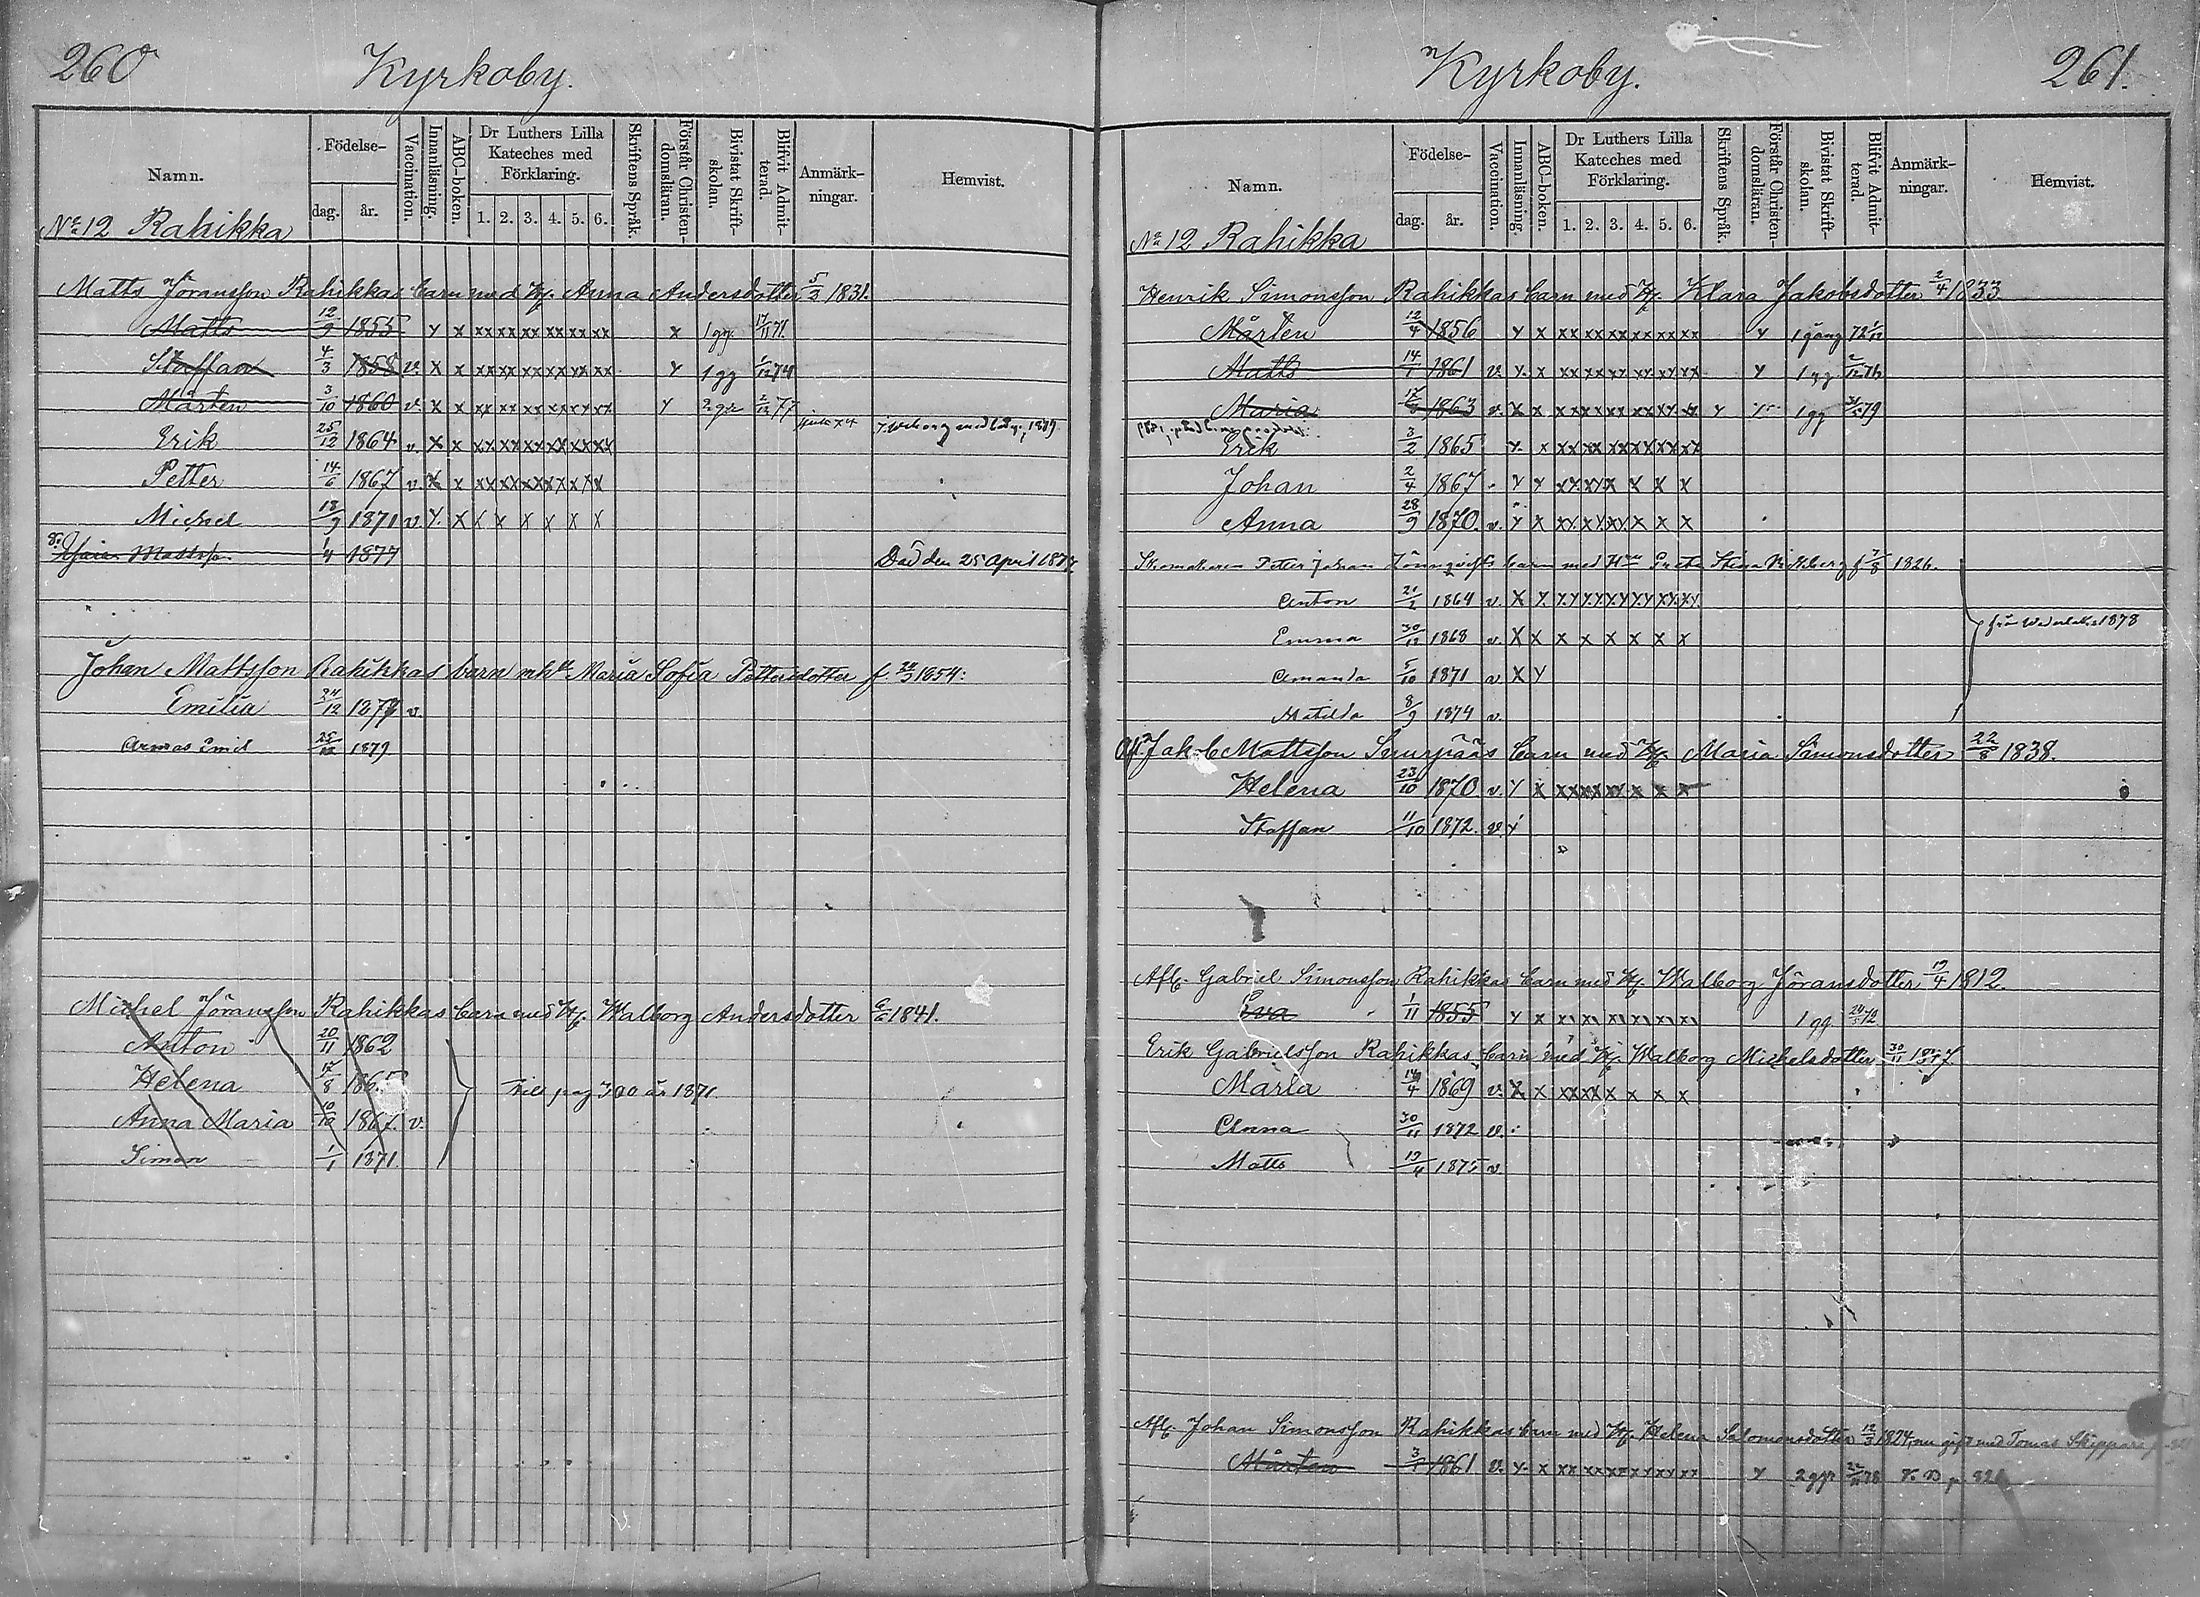 260 Kyrkoby.
Namn. Födelse- dag. år. Vaccination. Innanläsning. ABC-boken. Dr Luthers Lilla Kateches med Förklaring. 1. 2. 3. 4. 5. 6. Skriftens Språk. Förstår Christendomsläran. Bivistat Skriftskolan. Blifvit Admitterad. Anmärkningar. Hemvist.
No 12 Rahikka
Matts Jöransson Rahikkas barn med H. Anna Andersdotter 5/3 1831.
Matts 12/9 1855 x x xx xx xx xx xx xx x 1 gg. 17/11 71.
Staffan 4/3 1858 v. x x xx xx xx xx xx xx x 1 gg 1/12 74
Mårten 3/10 1860 v. x x xx xx xx xx xx xx x 2 gr 2/12 77
Erik 25/12 1864 v. x x xx xx xx xx xx xx i Wiborg med bg. 1879
Petter 14/6 1867 v x x xx xx xx xx x x
Michel 18/9 1871 v. x. x x x x x x x
Mattss. 1/4 1877 Död den 25 April 1877.
Johan Mattsson Rahikkas barn m h Maria Sofia Pettersdotter f 1854:
Emilia 24/12 1877 v.
Armas Emil 25/12 1879
Michel Jöransson Rahikkas barn med H. Walborg Andersdotter 6/6 1841.
Anton 20/11 1862
Helena 17/8 1865
Anna Maria 10/10 1867. v. Till pag 300 år 1871.
Simon 1/1 1871.
Kyrkoby. 261.
Namn. Födelse- dag. år. Vaccination. Innanläsning. ABC-boken. Dr Luthers Lilla Kateches med Förklaring. 1. 2. 3. 4. 5. 6. Skriftens Språk. Förstår Christendomsläran. Bivistat Skriftskolan. Blifvit Admitterad. Anmärkningar. Hemvist.
No 12 Rahikka
Henrik Simonsson Rahikkas barn med H. Klara Jakobsdotter 2/4 1833
Mårten 12/4 1856 x x xx xx xx xx xx xx x 1 gång 72 1/12
Matts 14/1 1861 v. x. x xx xx xx xx xx xx x 1 gg. 2/12 76
Maria 1863 v. x x xx xx xx xx xx xx x 1 gg 79
Erik 3/2 1865 x. x xx xx xx xx xx xx
Johan 2/4 1867 x x xx xx x x x x
Anna 28/9 1870. v. x x xx xx xx x x x
Skomakaren Petter Johan Lönnqvists barn med H Greta Stina f 7/8 1826.
Anton 21/2 1864 v. x x. xx xx xx xx xx xx
Emma 30/12 1868 v. x x x x x x x x från Wederlaks 1878
Amanda 5/10 1871 v. x x
Matilda 8/9 1874 v.
Afl. Jakob Mattsson Suurpääs barn med H. Maria Simonsdotter 22/8 1838.
Helena 23/10 1870 v. x x xx xx xx x x x
Staffan 11/10 1872. v. x
Afl. Gabriel Simonsson Rahikkas barn med H. Walborg Jöransdotter 19/4 1812.
Eva 1/11 1855 x x xx xx xx xx xx xx 1 gg. 72
Erik Gabrielsson Rahikkas barn med H. Walborg Michelsdotter 30/11
Maria 14/4 1869 v. x x xx xx x x x x
Anna 30/11 1872 v.
Matts 19/4 1875 v
Afl. Johan Simonsson Rahikkas barn med H. Helena Salomonsdotter 12/3 1824, nu gift med Tomas Skippari
Mårten 1861 v. x. x xx xx xx xx xx xx x 2 ggr 78